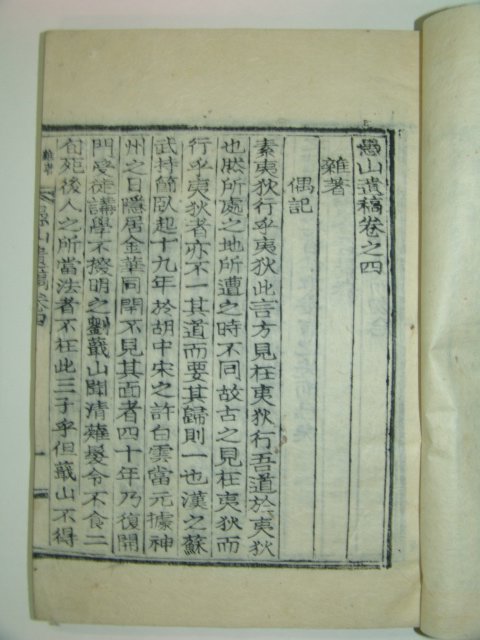 愚山遺稿卷之四
雜著
偶記
素夷狄行乎夷狄此言方見在夷狄行吾道於夷狄
也然所處之地所遭之時不同故古之見在夷狄而
行乎夷狄者亦不一其道而要其歸則一也漢之蘇
武持節臥起十九年於胡中宋之許白雲當元據神
州之日隱居金華同開不見其面者四十年乃復開
門受徒講學不擾明之劉蕺山聞清薙髮令不食二
旬死後人之所當法者不在此三子乎但蕺山不得
雜著
愚山遺稿 卷四